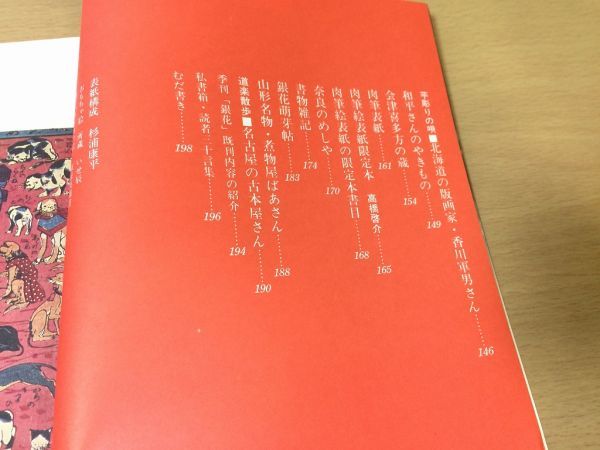 手彫りの唄■北海道の版画家・香川軍男さん……146
和平さんのやきもの……149
会津喜多方の蔵……154
肉筆表紙……161
肉筆絵表紙限定本 高橋啓介……165
肉筆絵表紙の限定本書目……168
奈良のめしや……170
書物雑記……174
銀花萌芽帖……183
山形名物・煮物屋ばあさん……188
道楽散歩■名古屋の古本屋さん……190
季刊「銀花」既刊内容の紹介……194
私書箱・読者二十言集……196
むだ書き……198
表紙構成 杉浦康平
おもちゃ絵 所蔵 いせ辰